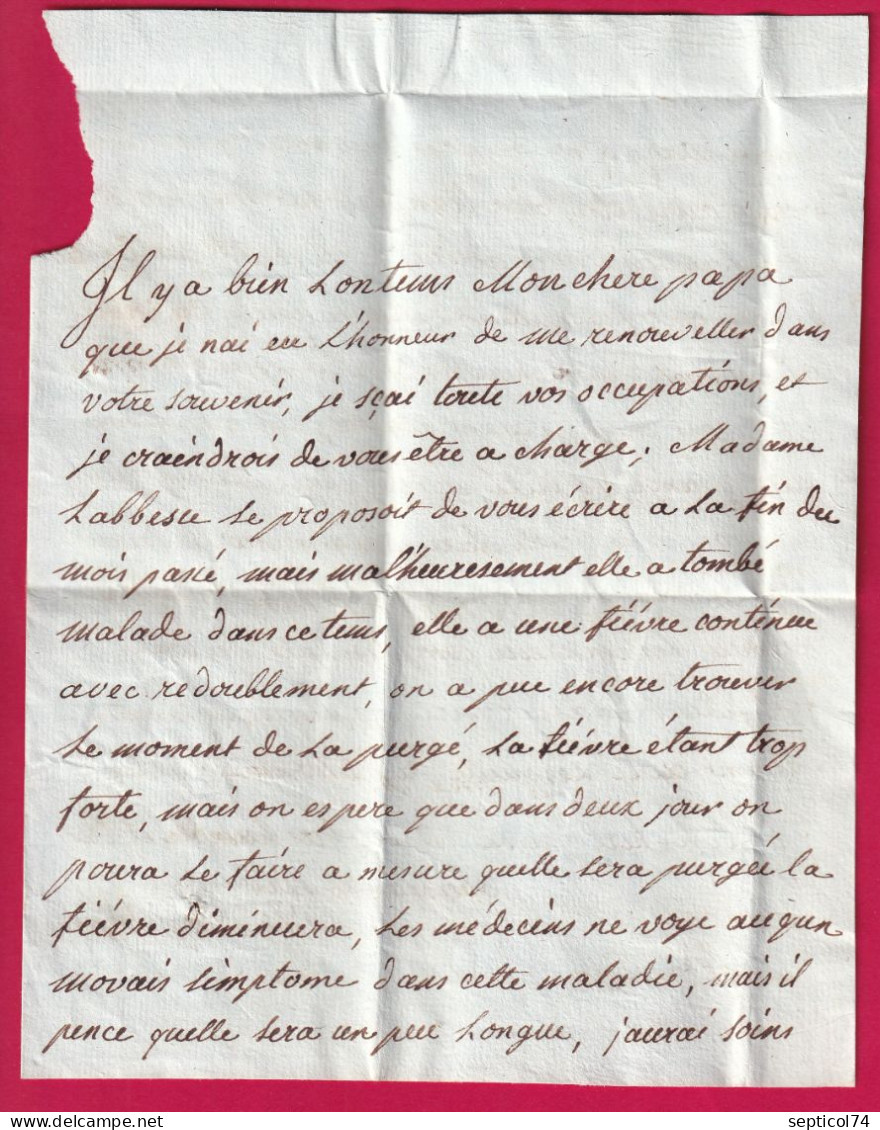 Il y a bien Lontems Mon chere papa
que je nai eu L'honneur de me renouveller dans
votre souvenir, je sçai toute vos occupations, et
je craindrois de vous être a charge; Madame
Labbesse se proposoit de vous écrire a La fin du
mois passé, mais malheuresement elle a tombé
malade dans ce tems, elle a une fiévre continue
avec redoublement, on a pu encore trouver
Le moment de La purgé, La fiévre étant trop
forte, mais on espere que dans deux jour on
poura Le faire a mesure quelle sera purgée la
fiévre diminuera, Les médecins ne voye auqun
movais simptome dans cette maladie, mais il
pence quelle sera un peu Longue, j'aurai soins
www.delcampe.net
septicol74